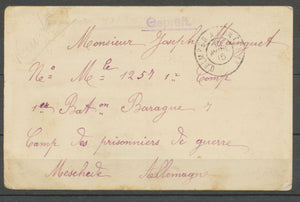 Geprüft.
Monsieur Joseph
No Mle 1257 1re Comp
1er Baton Baraque 7
Camp des prisonniers de guerre
Meschede Allemagne